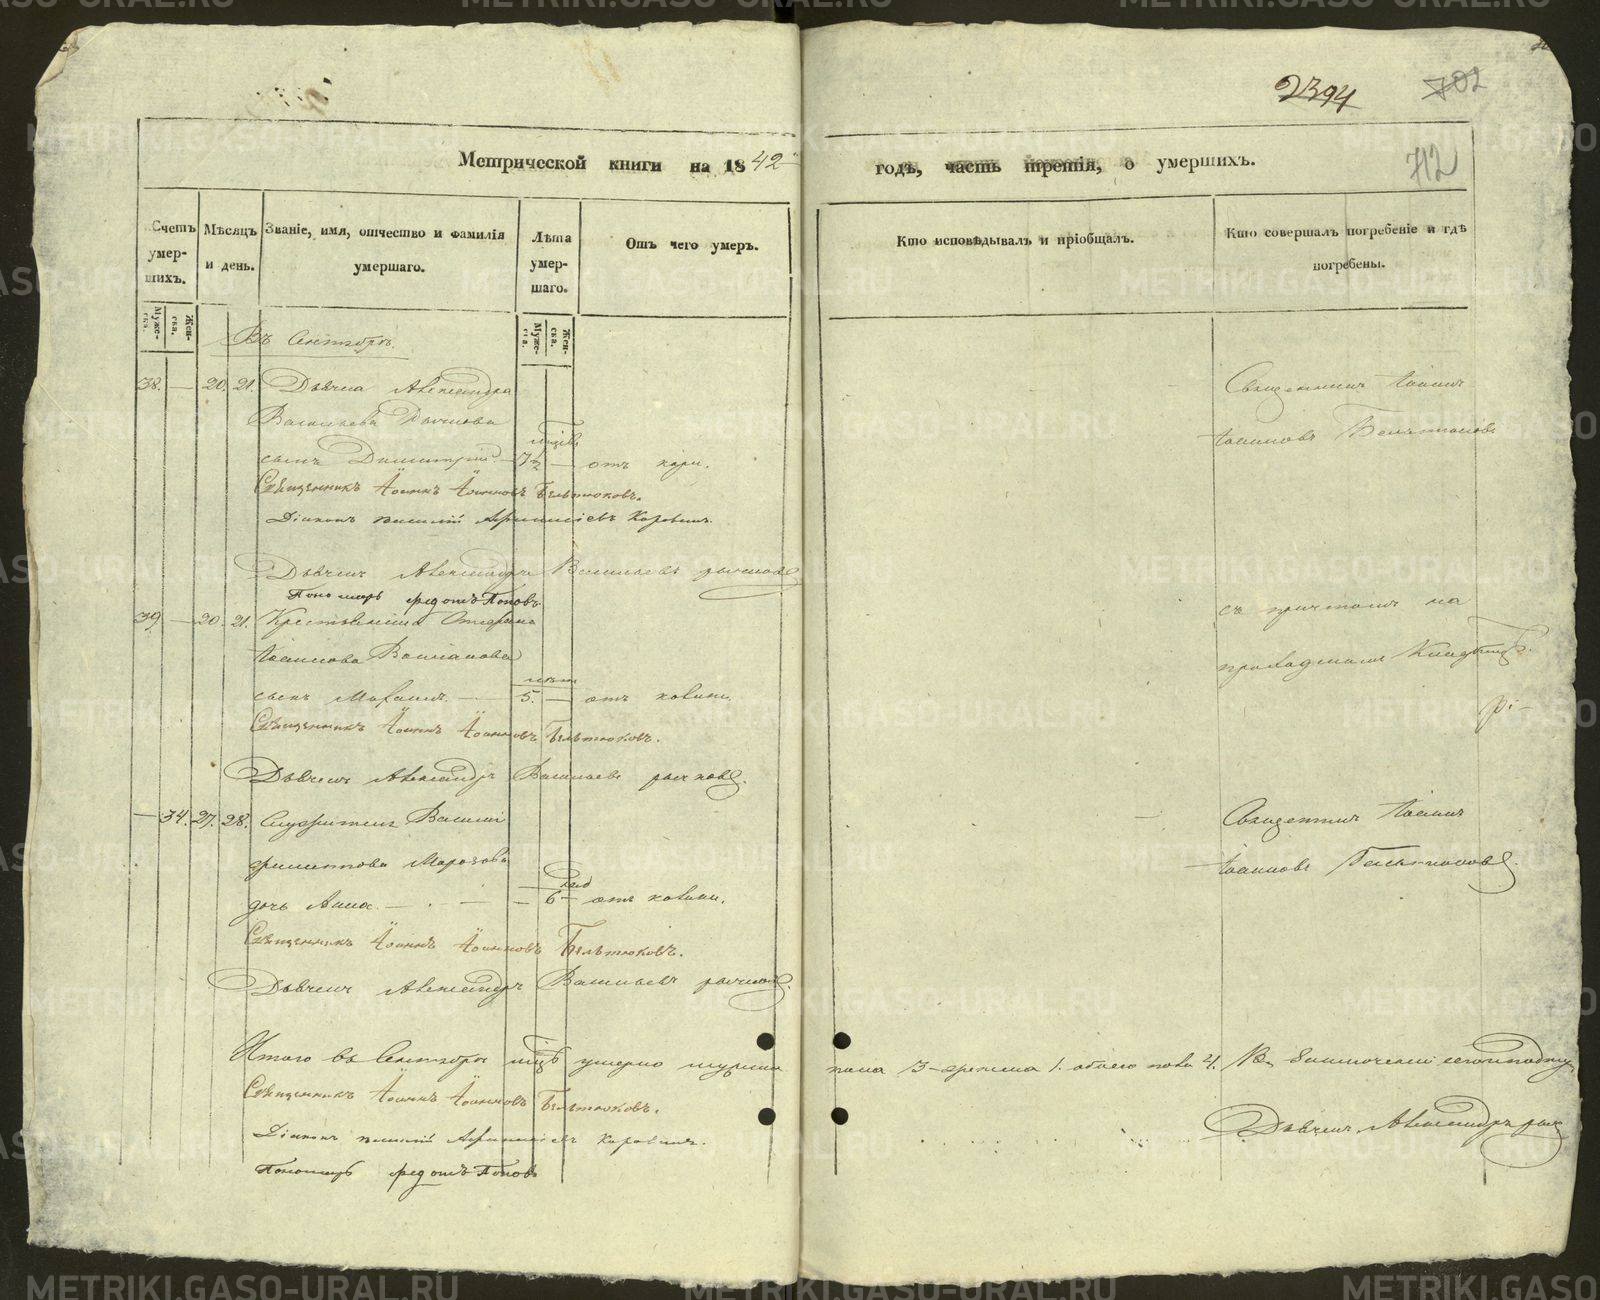 2394
702
712
Метрической книги на 1842 годъ, часть третія, о умершихъ.
Счетъ умер-шихъ.
Мѣсяцъ и день.
Званіе, имя, отчество и фамилія умершаго.
Лѣта умер-шаго.
Отъ чего умеръ.
Кто исповѣдывалъ и пріобщалъ.
Кто совершалъ погребеніе и гдѣ погребены.
Муже-ска.
Жен-ска.
Муже-ска.
Жен-ска.
Въ Сентябрѣ.
38. — 20. 21. Дьячка Александра
Васильева Рычкова
сынъ Димитрій — 7½ — отъ кори.
Священникъ Іоаннъ Іоанновъ Бѣльтюковъ.
Діаконъ Василій Коровинъ.
Дьячекъ Александръ Васильевъ Рычковъ
Пономарь Федотъ Поповъ
39. — 20. 21. Крестьянина
Іоаннова
сынъ Михаилъ. — 5. — отъ
Священникъ Іоаннъ Іоанновъ Бѣльтюковъ.
Дьячекъ Александръ Васильевъ Рычковъ.
— 34. 27. 28. Служителя Василія
Филиппова Морозова
дочь Анна — 6 — отъ
Священникъ Іоаннъ Іоанновъ Бѣльтюковъ.
Дьячекъ Александръ Васильевъ Рычковъ.
Итого въ Сентябрѣ мцѣ умерло мужска пола 3 — женска 1. обоего пола 4.
Священникъ Іоаннъ Іоанновъ Бѣльтюковъ.
Діаконъ Василій Коровинъ.
Пономарь Федотъ Поповъ
Священникъ Іоаннъ
Іоанновъ Бѣльтюковъ
съ причтомъ на
приходскомъ Кладбищѣ.
Священникъ Іоаннъ
Іоанновъ Бѣльтюковъ.
Дьячекъ Александръ
METRIKI.GASO-URAL.RU